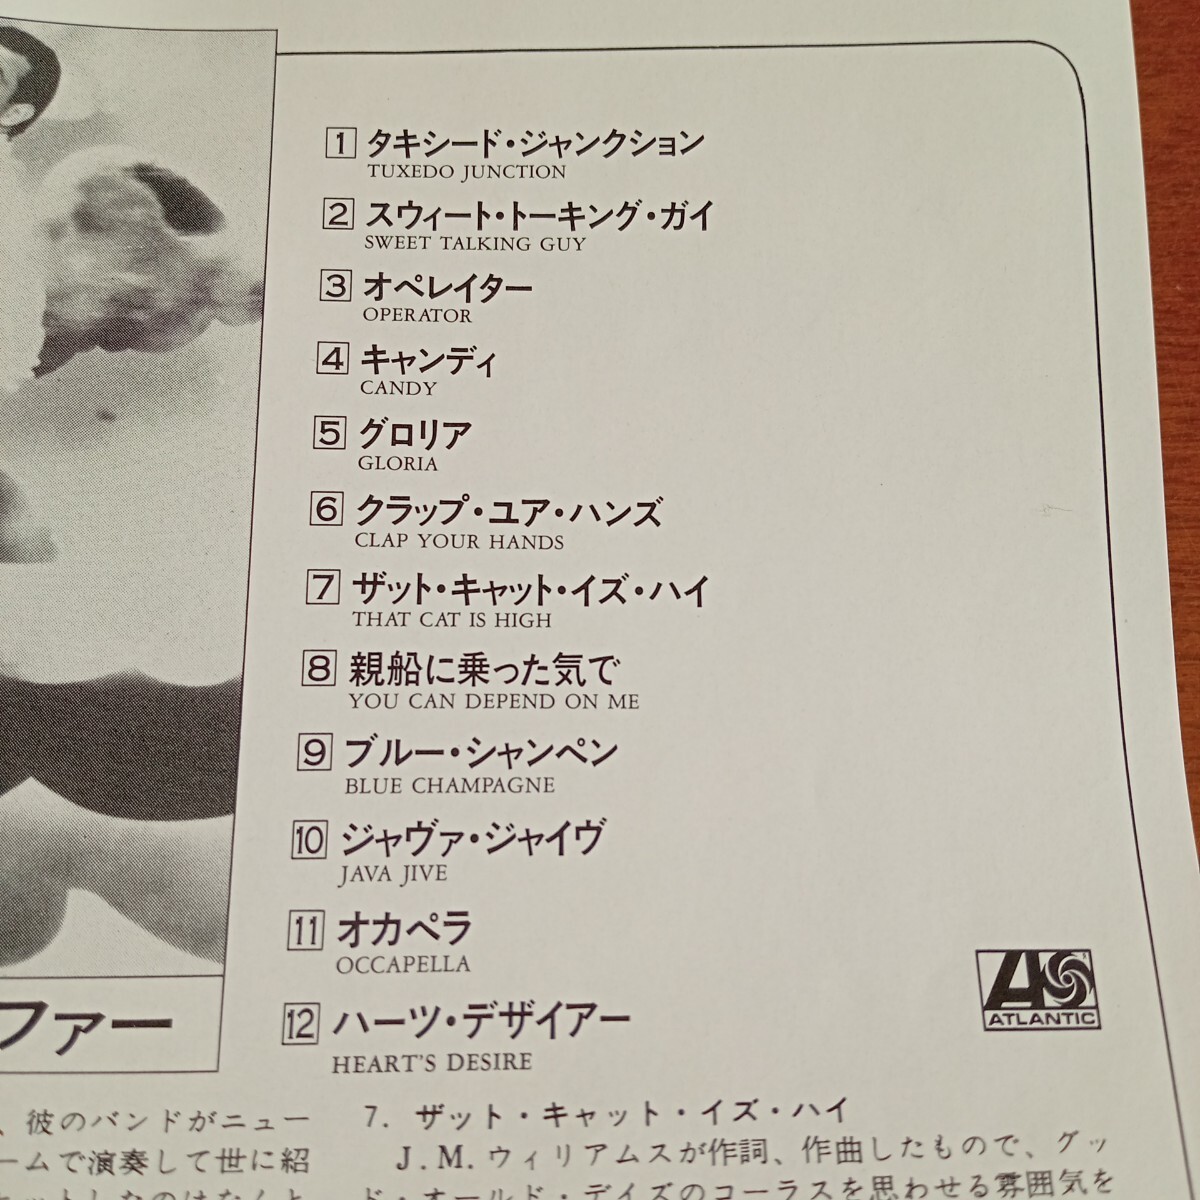 1 タキシード・ジャンクション
TUXEDO JUNCTION
2 スウィート・トーキング・ガイ
SWEET TALKING GUY
3 オペレイター
OPERATOR
4 キャンディ
CANDY
5 グロリア
GLORIA
6 クラップ・ユア・ハンズ
CLAP YOUR HANDS
7 ザット・キャット・イズ・ハイ
THAT CAT IS HIGH
8 親船に乗った気で
YOU CAN DEPEND ON ME
9 ブルー・シャンペン
BLUE CHAMPAGNE
10 ジャヴァ・ジャイヴ
JAVA JIVE
11 オカペラ
OCCAPELLA
12 ハーツ・デザイアー
HEART'S DESIRE
ATLANTIC
ファー
、彼のバンドがニュー
ームで演奏して世に紹
ットしたのはなんと
7. ザット・キャット・イズ・ハイ
J.M.ウィリアムスが作詞、作曲したもので、グッ
ド・オールド・デイズのコーラスを思わせる雰囲気を